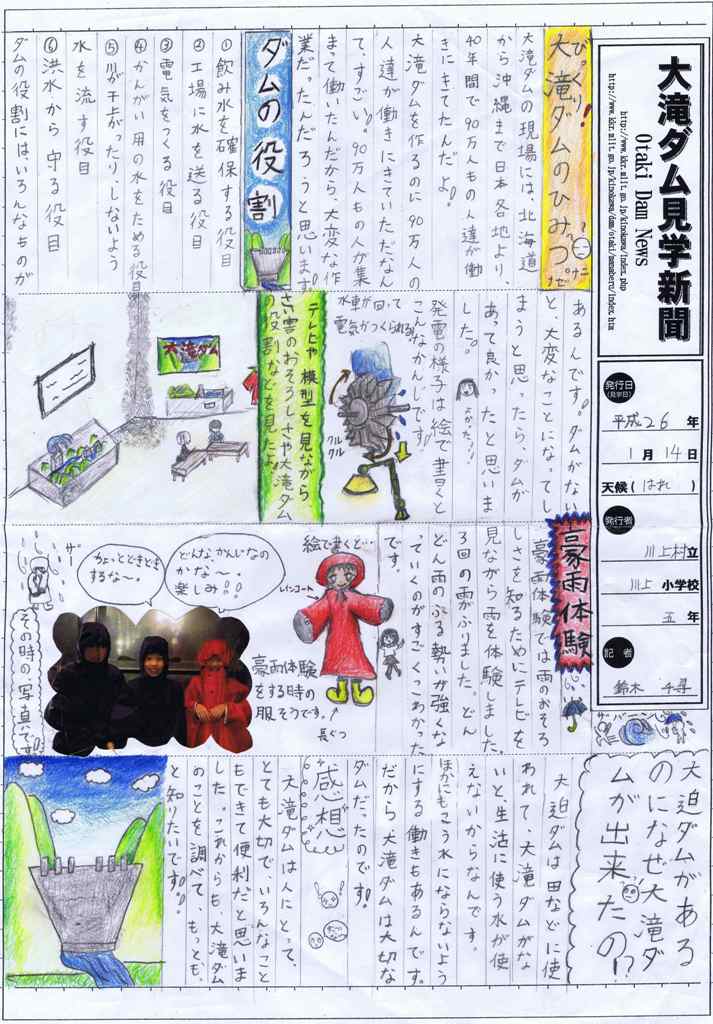 大滝ダム見学新聞
Otaki Dam News
http://www.kkr.mlit.go.jp/kinokawa/index.php
http://www.kkr.mlit.go.jp/kinokawa/dam/otaki/manaberu/index.htm
発行日
(見学日)
平成26年
1月14日
天候(はれ)
発行者
川上村立
川上小学校
五年
記者
鈴木 千尋
びっくり!
大滝ダムのひみつ。
大滝ダムの現場には、北海道
から沖縄まで日本各地より、
40年間で90万人もの人達が働
きにきてたんだよ。
大滝ダムを作るのに90万人の
人達が働きにきていただなん
て、すごい。90万人もの人が集
まって働いたんだから、大変な作
業だったんだろうと思います。
ダムの役割
①飲み水を確保する役目
②工場に水を送る役目
③電気をつくる役目
④かんがい用の水をためる役目
⑤川が干上がったりしないよう
水を流す役目
⑥洪水から守る役目
ダムの役割にはいろんなものが
あるんです。ダムがない
と、大変なことになってし
まうと思ったら、ダムが
あって良かったと思いま
した。
よかった!
発電の様子は絵で書くと
こんなかんじです!
水車が回って
電気がつくられる。
クルクル
テレビや模型を見ながら
さい害のおそろしさや大滝ダム
の役割などを見たよ。
大滝ダム
豪雨体験
豪雨体験では雨のおそろ
しさを知るためにテレビを
見ながら雨を体験しました。
3回の雨がふりました。どん
どん雨のふる勢いが強くな
っていくのがすごくこわかった
です。
絵で書くと…
レインコート
長ぐつ
豪雨体験
をする時の
服そうです。
どんなかんじなの
かな~。
楽しみ!!
ちょっとどきどき
するな~。
ザー
その時の写真です!
大迫ダムがある
のになぜ大滝ダ
ムが出来たの!?
大迫ダムは田などに使
われて、大滝ダムがな
いと、生活に使う水が使
えないからなんです。
ほかにもこう水にならないよう
にする働きもあるんです。
だから大滝ダムは大切な
ダムだったのです!
感想
大滝ダムは人にとって、
とても大切で、いろんなこと
もできて便利だと思いま
した。これからも、大滝ダム
のことを調べて、もっとも、
と知りたいです!